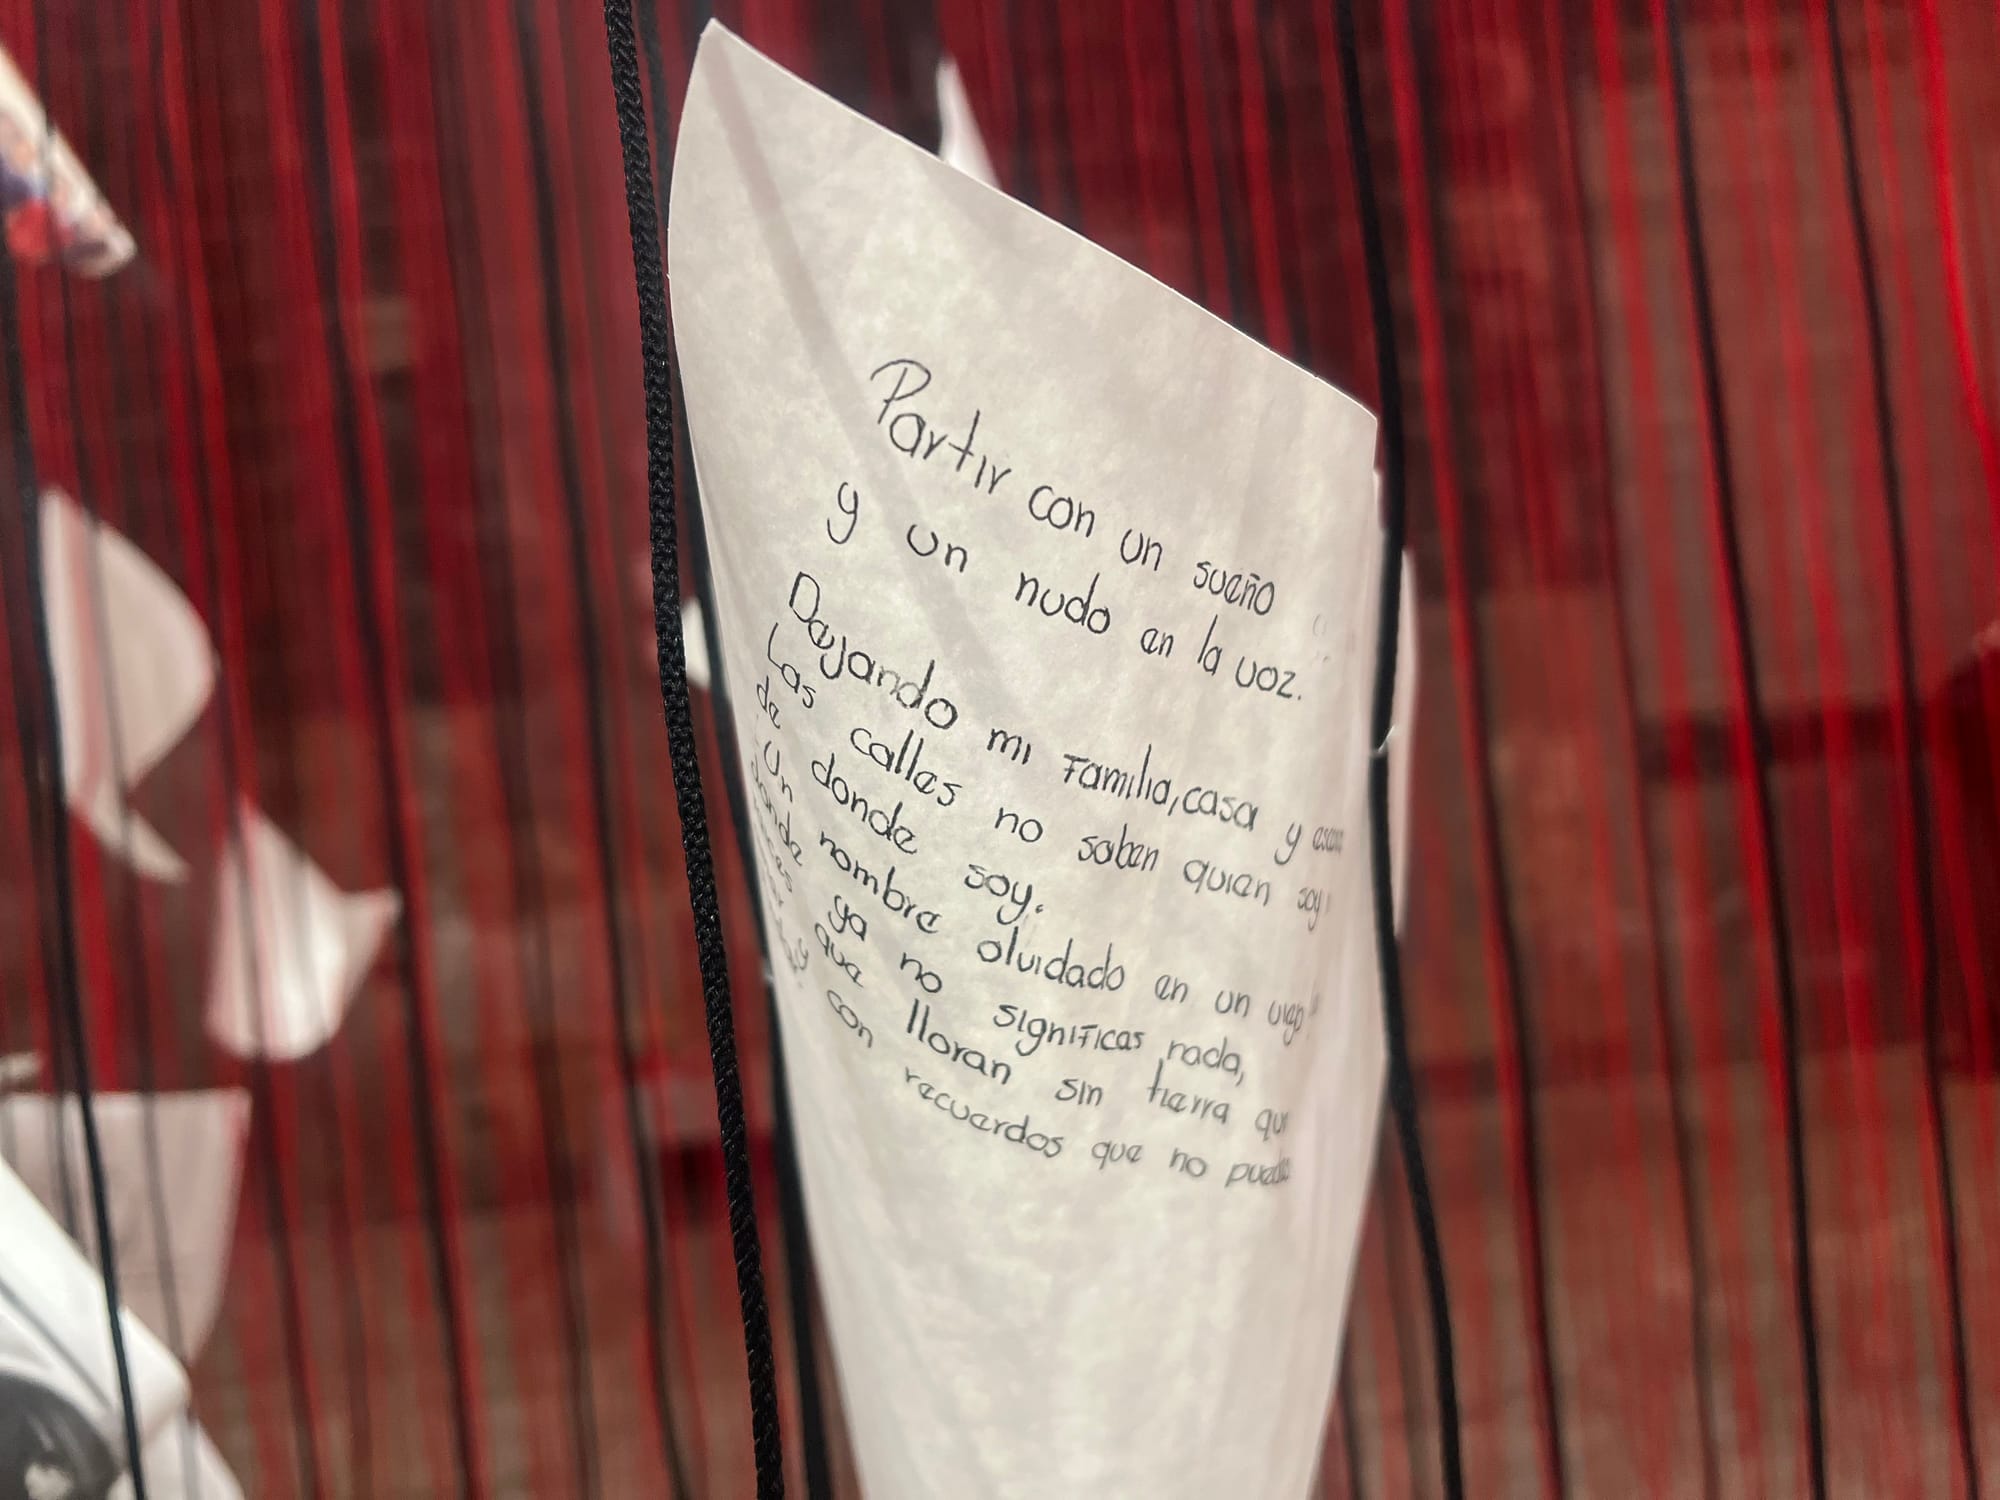 Partir con un sueño
y un nudo en la voz.
Dejando mi familia, casa y
Las calles no saben quien soy
de donde soy.
Un nombre olvidado en un viejo
donde ya no significas nada,
que lloran sin tierra que
y con recuerdos que no puedes